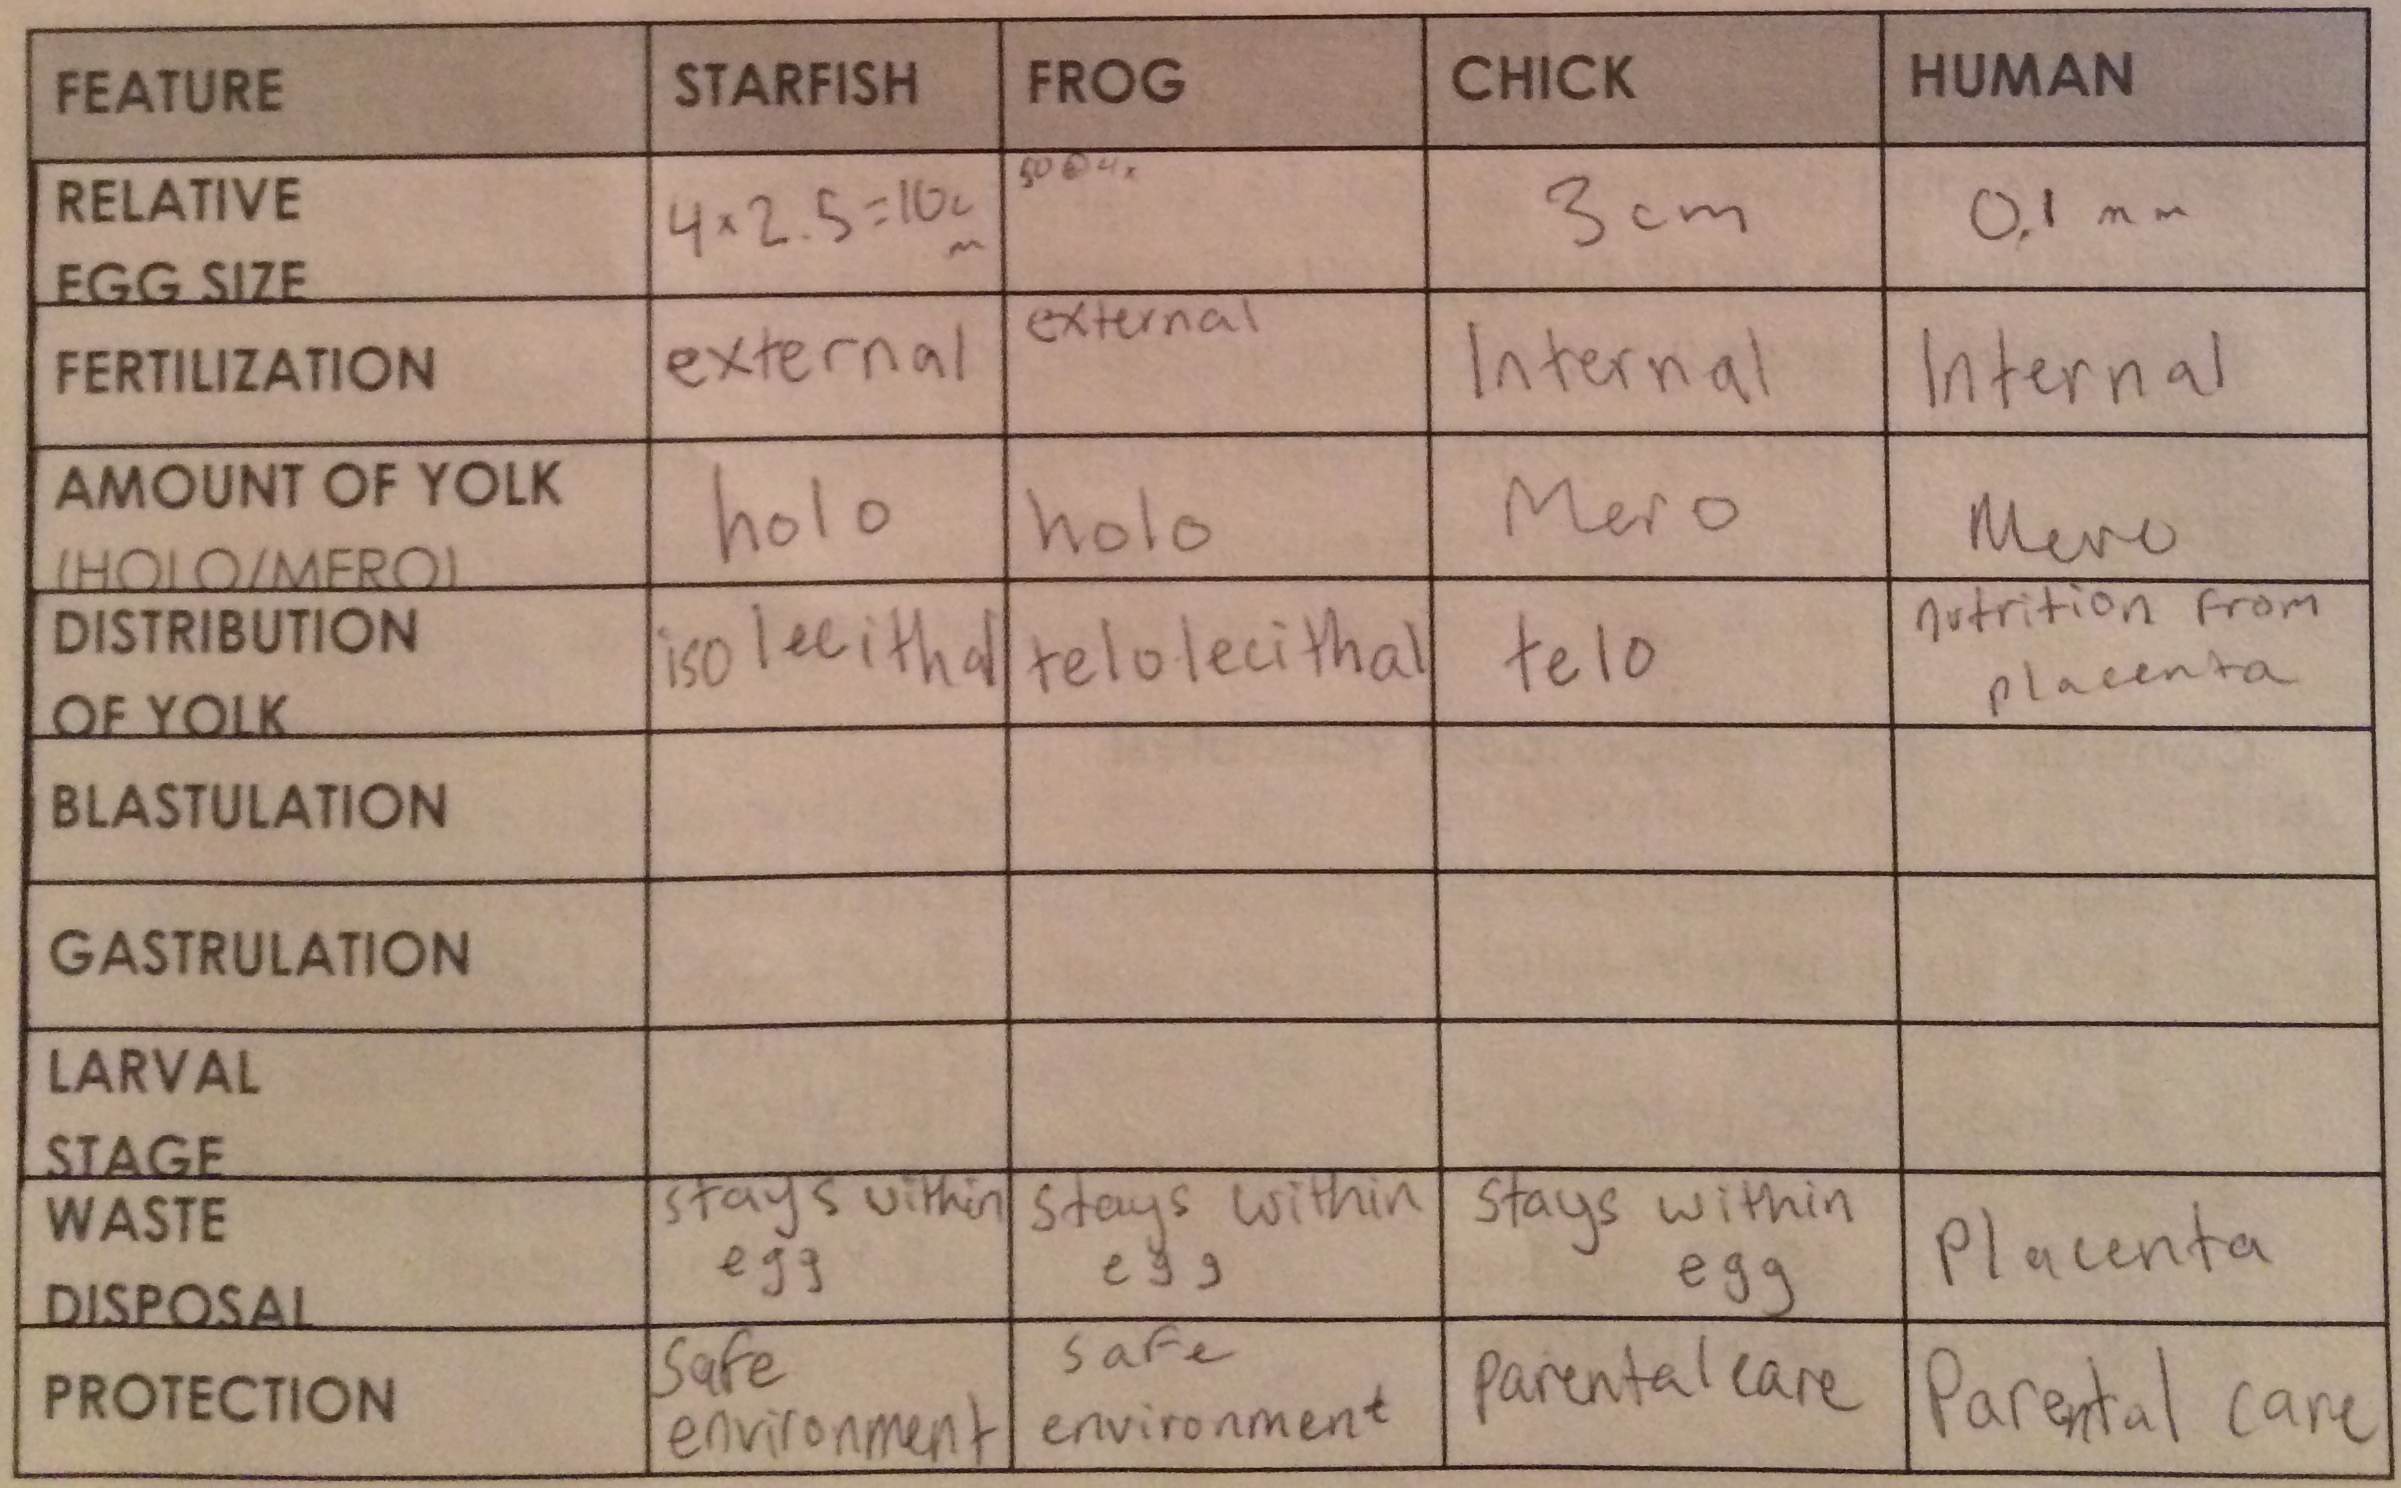 FEATURE STARFISH FROG CHICK HUMAN
RELATIVE
EGG SIZE
4 x 2.5 = 10c
m
50 @ 4x
3 cm
0.1 mm
FERTILIZATION
external
external
Internal
Internal
AMOUNT OF YOLK
(HOLO/MERO)
holo
holo
Mero
Mero
DISTRIBUTION
OF YOLK
isolecithal
telolecithal
telo
nutrition from
placenta
BLASTULATION
GASTRULATION
LARVAL
STAGE
WASTE
DISPOSAL
stays within
egg
stays within
egg
stays within
egg
Placenta
PROTECTION
Safe
environment
safe
environment
parental care
Parental care